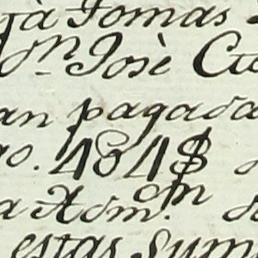 jà Tomas
Dn. Josè
an pagada
go. 484$
a Adm.on
estas Sum